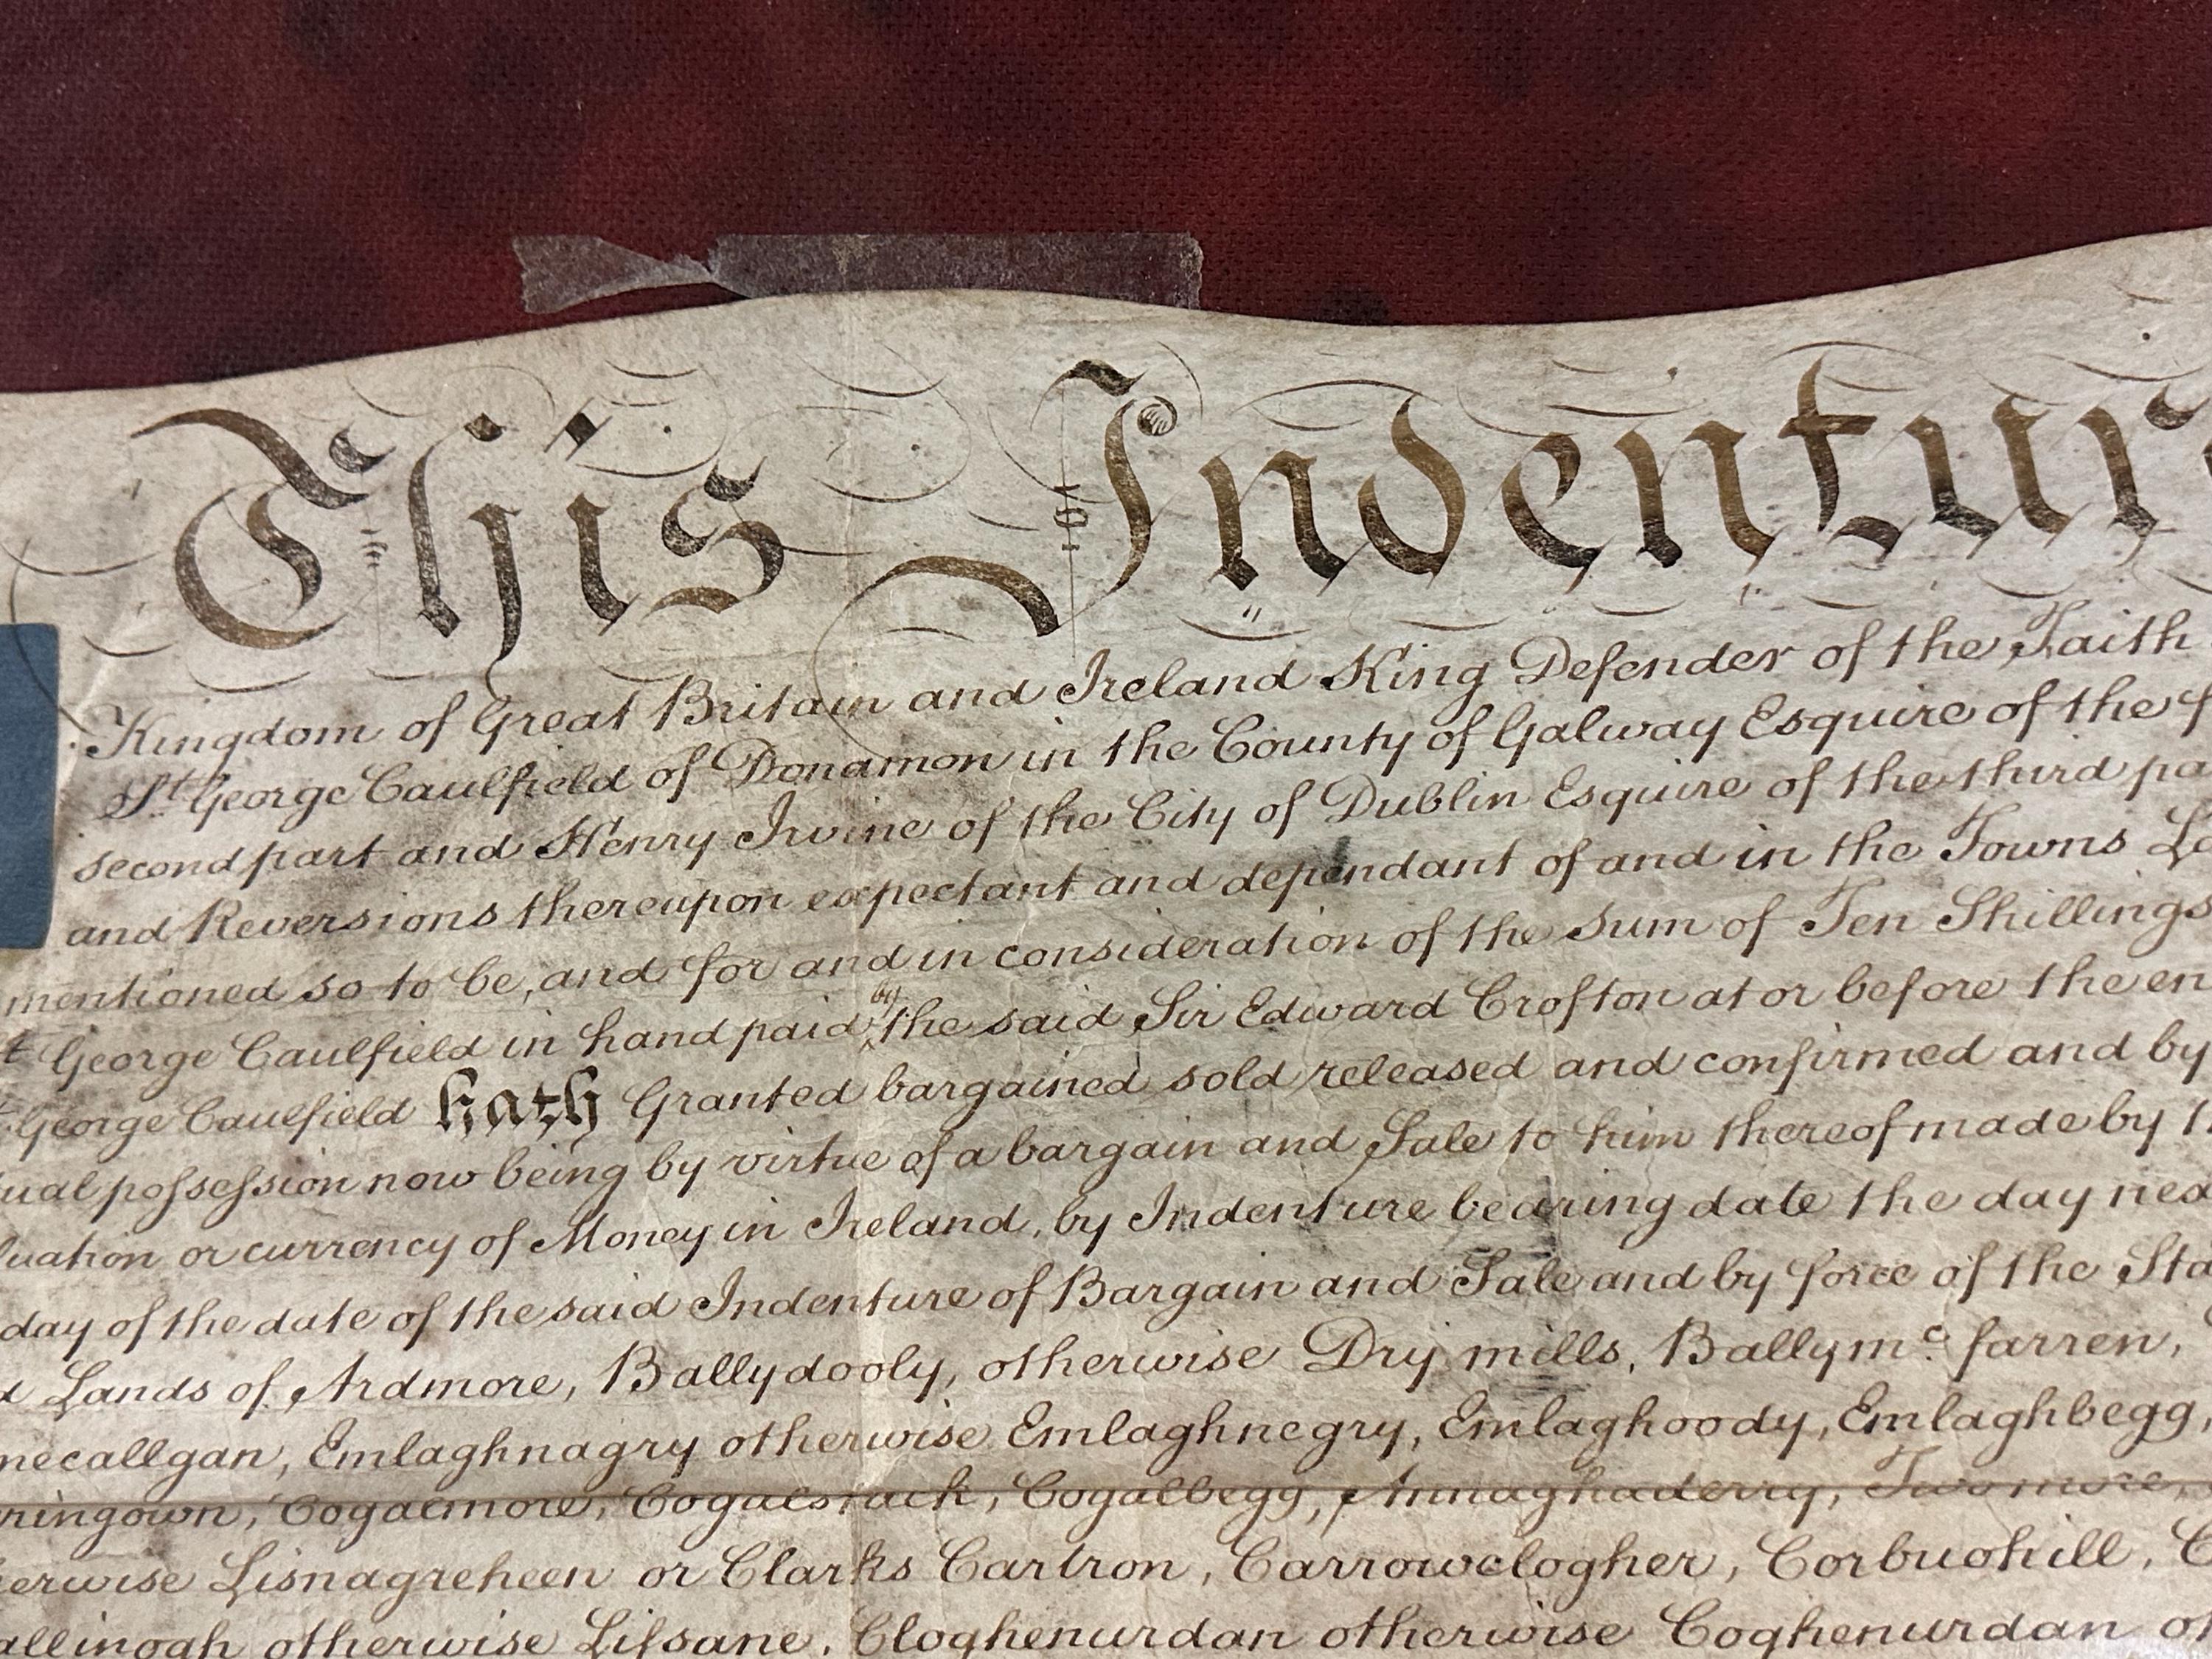 This Indentur
Kingdom of Great Britain and Ireland King Defender of the Faith
St. George Caulfield of Donamon in the County of Galway Esquire of the f
second part and Henry Irvine of the City of Dublin Esquire of the third pa
and Reversions thereupon expectant and dependant of and in the Towns La
mentioned so to be, and for and in consideration of the Sum of Ten Shillings
t George Caulfield in hand paid by the said Sir Edward Crofton at or before the en
George Caulfield hath Granted bargained sold released and confirmed and by
tual possession now being by virtue of a bargain and Sale to him thereof made by th
luation or currency of Money in Ireland, by Indenture bearing date the day nex
day of the date of the said Indenture of Bargain and Sale and by force of the Sta
d Lands of Ardmore, Ballydooly, otherwise Dry mills, Ballymc. farren,
necallgan, Emlaghnagry otherwise Emlaghnegry, Emlaghoody, Emlaghbegg,
ringown, Cogalmore, Cogalstack, Cogalbegg, Annaghaderry, Turmore,
erwise Lisnagreheen or Clarks Cartron, Carrowclogher, Corbuohill, C
allinogh otherwise Lissane, Cloghenurdan otherwise Coghenurdan or